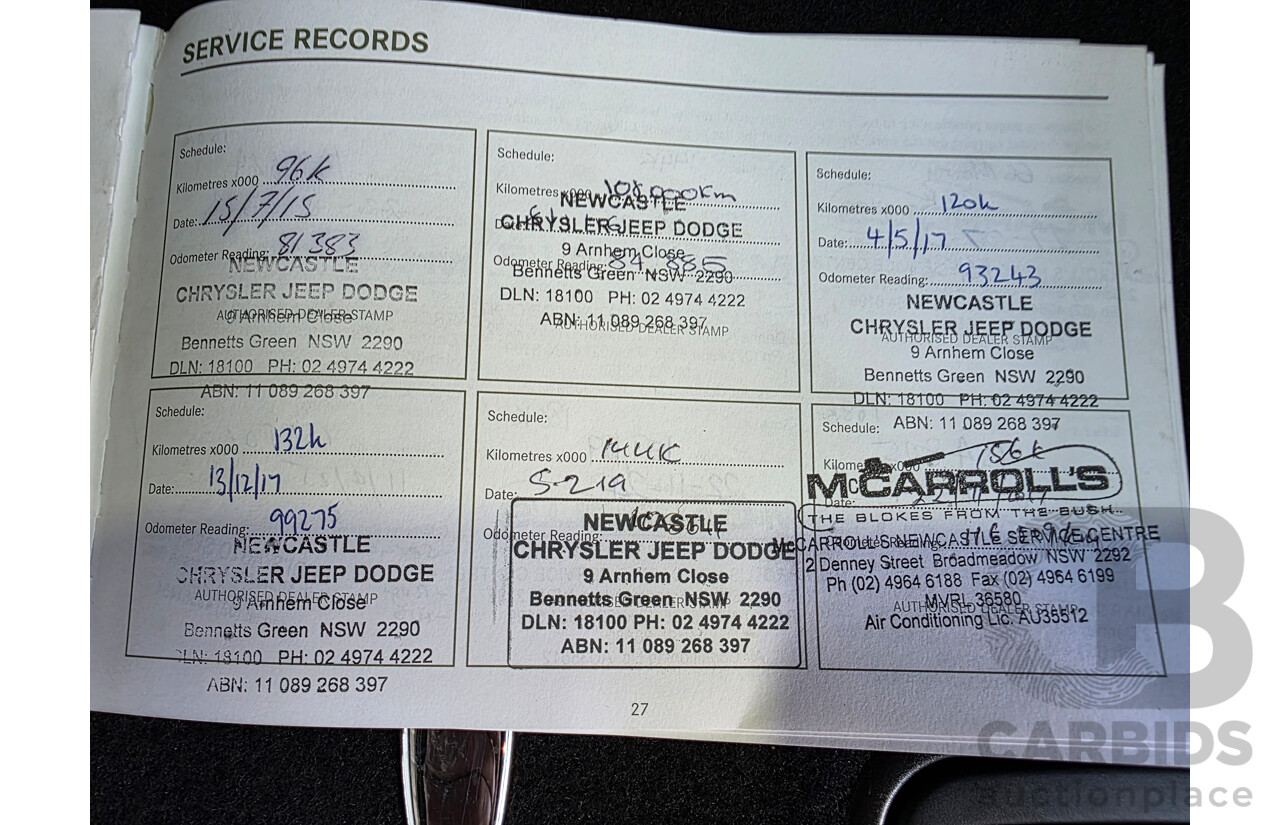 SERVICE RECORDS
Schedule:
Kilometres x000 96k
Date: 15/7/15
Odometer Reading: 81383
NEWCASTLE
CHRYSLER JEEP DODGE
AUTHORISED DEALER STAMP
9 Arnhem Close
Bennetts Green NSW 2290
DLN: 18100 PH: 02 4974 4222
ABN: 11 089 268 397
Schedule:
Kilometres x000 108,000km
NEWCASTLE
Date:
CHRYSLER JEEP DODGE
9 Arnhem Close
Odometer Reading:
Bennetts Green NSW 2290
DLN: 18100 PH: 02 4974 4222
ABN: 11 089 268 397
AUTHORISED DEALER STAMP
Schedule:
Kilometres x000 120k
Date: 4/5/17
Odometer Reading: 93243
NEWCASTLE
CHRYSLER JEEP DODGE
AUTHORISED DEALER STAMP
9 Arnhem Close
Bennetts Green NSW 2290
DLN: 18100 PH: 02 4974 4222
ABN: 11 089 268 397
Schedule:
Kilometres x000 132k
Date: 13/12/17
Odometer Reading: 99275
NEWCASTLE
CHRYSLER JEEP DODGE
AUTHORISED DEALER STAMP
9 Arnhem Close
Bennetts Green NSW 2290
DLN: 18100 PH: 02 4974 4222
ABN: 11 089 268 397
Schedule:
Kilometres x000 144K
Date: 5-2-19
Odometer Reading:
NEWCASTLE
CHRYSLER JEEP DODGE
9 Arnhem Close
Bennetts Green NSW 2290
DLN: 18100 PH: 02 4974 4222
ABN: 11 089 268 397
Schedule:
Kilometres x000 156k
McCARROLL'S
THE BLOKES FROM THE BUSH
McCARROLL'S NEWCASTLE SERVICE CENTRE
2 Denney Street Broadmeadow NSW 2292
Ph (02) 4964 6188 Fax (02) 4964 6199
MVRL 36580
AUTHORISED DEALER STAMP
Air Conditioning Lic. AU35512
27
CARBIDS
auctionplace